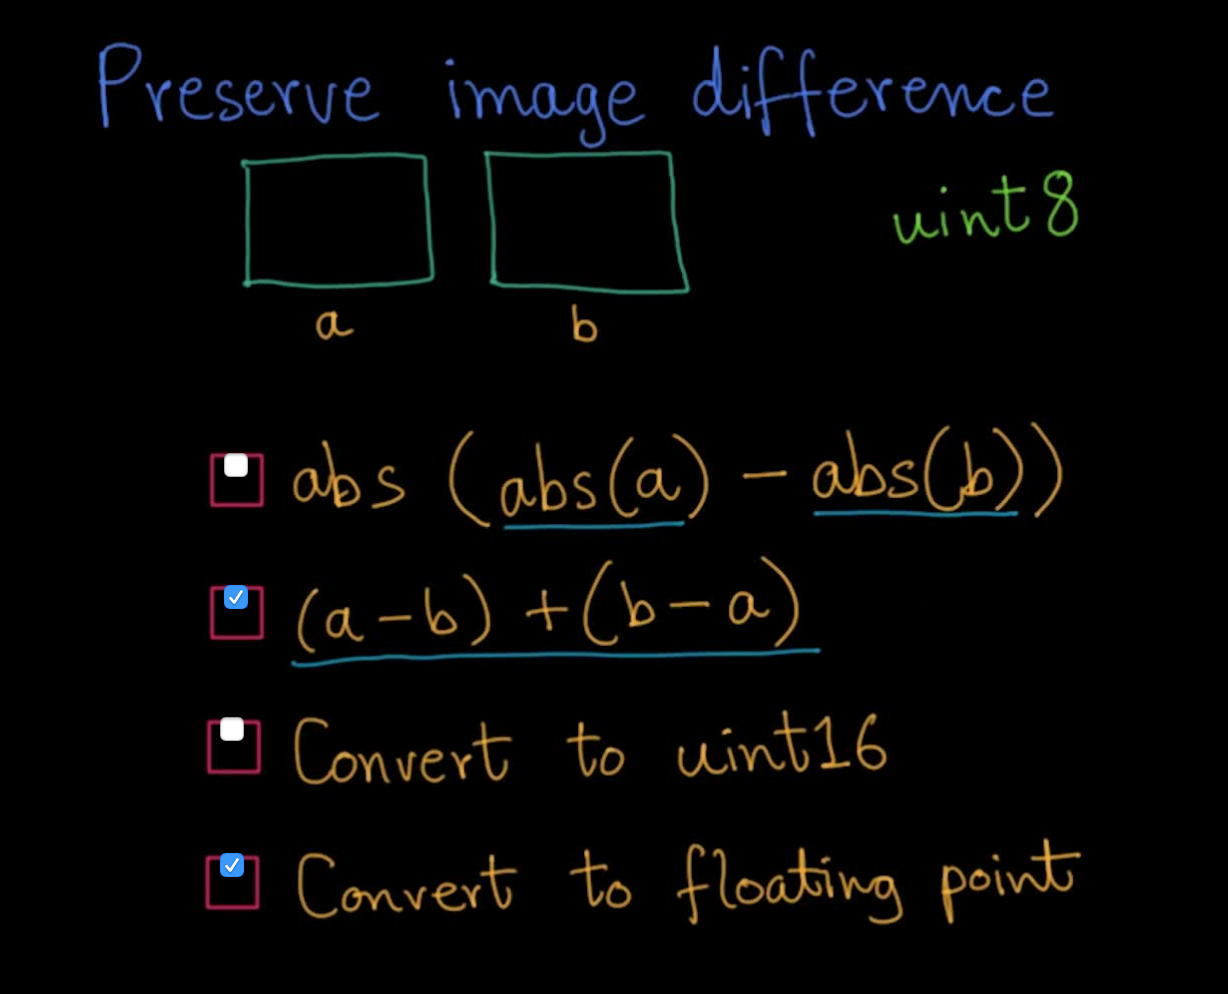 Preserve image difference
uint8
a b
abs (abs(a) - abs(b))
(a-b) + (b-a)
Convert to uint16
Convert to floating point